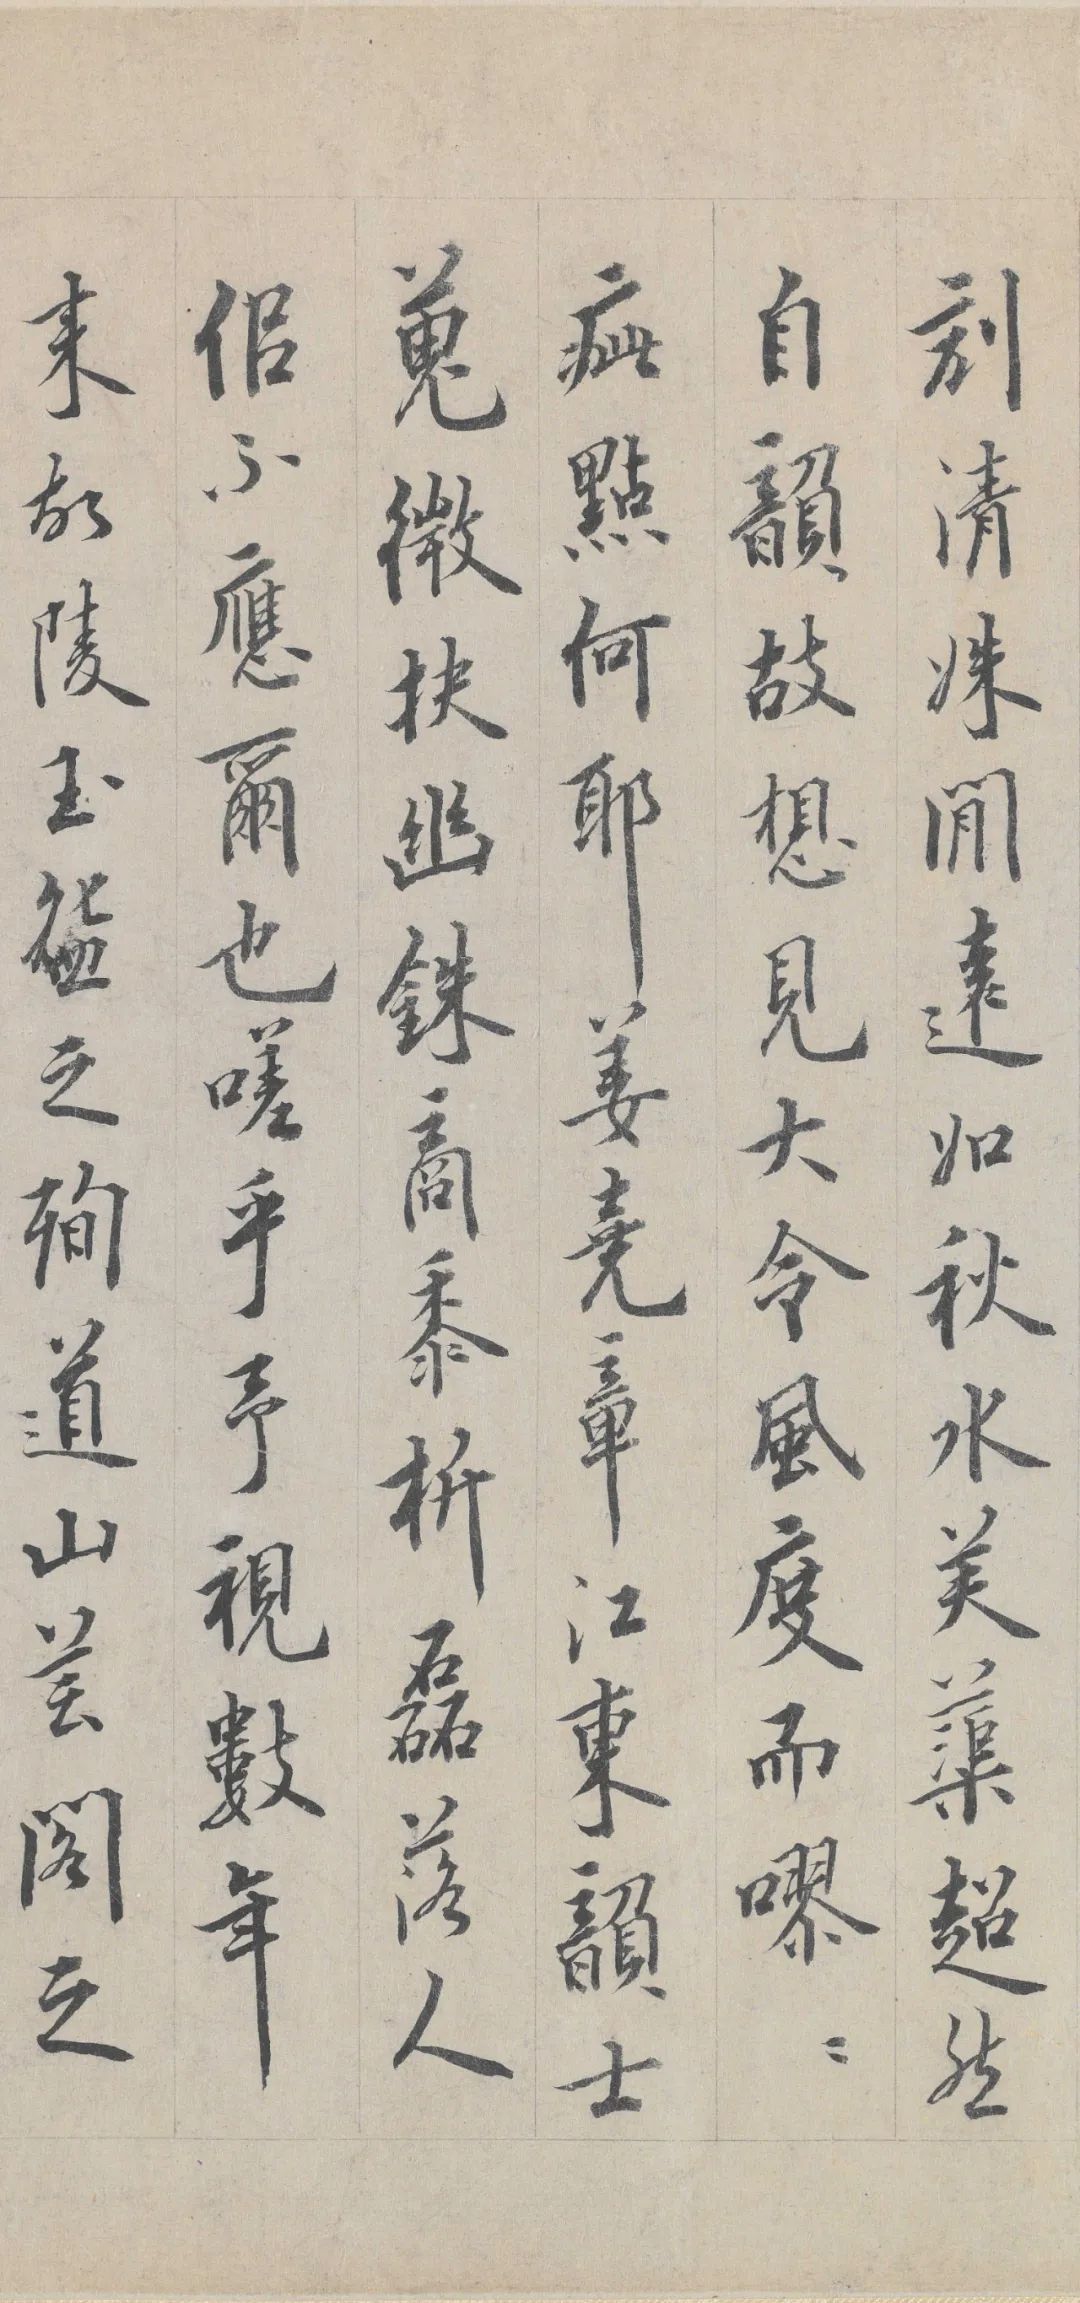 刻清姝閒遠如秋水芙蕖超然
自韻故想見大令風度而嘐〻
疵點何耶姜堯章江東韻士
蒐微抉幽銖商黍析磊落人
侶不應爾也嗟乎予視數年
来故陵玉盌之殉道山芸閣之